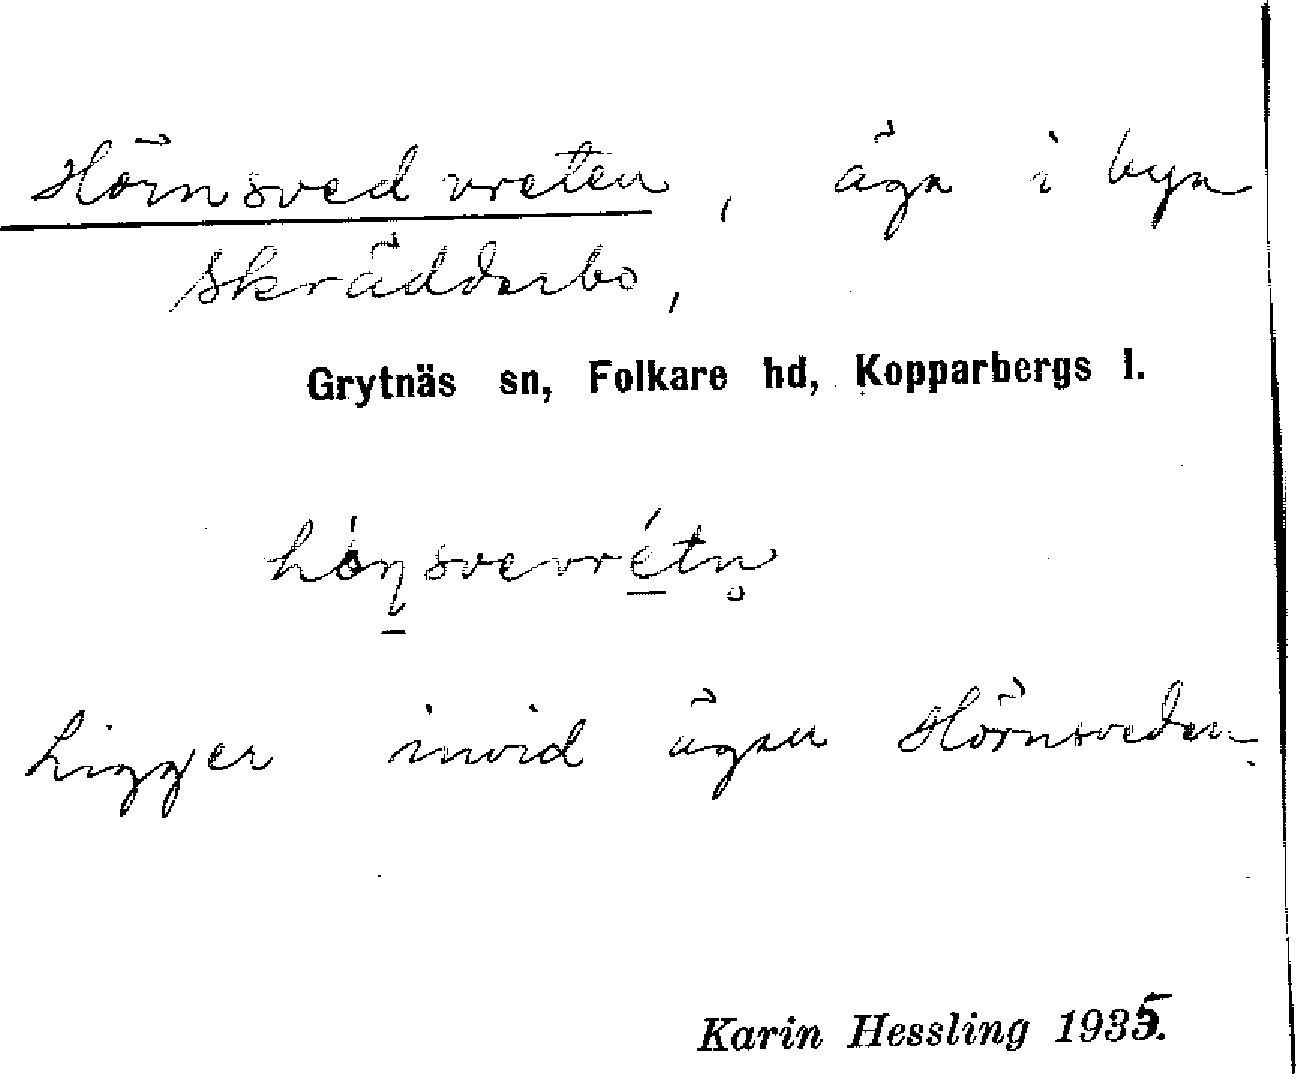 Hörnsvedvreten, äga i byn
Skräddarbo,
Grytnäs sn, Folkare hd, Kopparbergs l.
hóŋsvevrétn̥
Ligger invid ägan Hörnsveden.
Karin Hessling 1935.